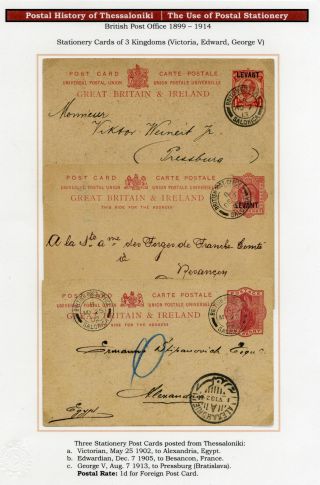 Postal History of Thessaloniki | The Use of Postal Stationery
British Post Office 1899 – 1914
Stationery Cards of 3 Kingdoms (Victoria, Edward, George V)
POST CARD CARTE POSTALE
UNIVERSAL POSTAL UNION UNION POSTALE UNIVERSELLE
GREAT BRITAIN & IRELAND
LEVANT
Monsieur
Viktor Weinert Jr.
(Pressburg)
POST CARD CARTE POSTALE
UNIVERSAL POSTAL UNION UNION POSTALE UNIVERSELLE
GREAT BRITAIN & IRELAND
THIS SIDE FOR THE ADDRESS
LEVANT
A la Sté ame des Forges de Franche Comté
à
Besançon
POST CARD CARTE POSTALE
UNIVERSAL POSTAL UNION UNION POSTALE UNIVERSELLE
GREAT BRITAIN & IRELAND
Alexandria
Egypt
Three Stationery Post Cards posted from Thessaloniki:
a. Victorian, May 25 1902, to Alexandria, Egypt.
b. Edwardian, Dec. 7 1905, to Besancon, France.
c. George V, Aug. 7 1913, to Pressburg (Bratislava).
Postal Rate: 1d for Foreign Post Card.